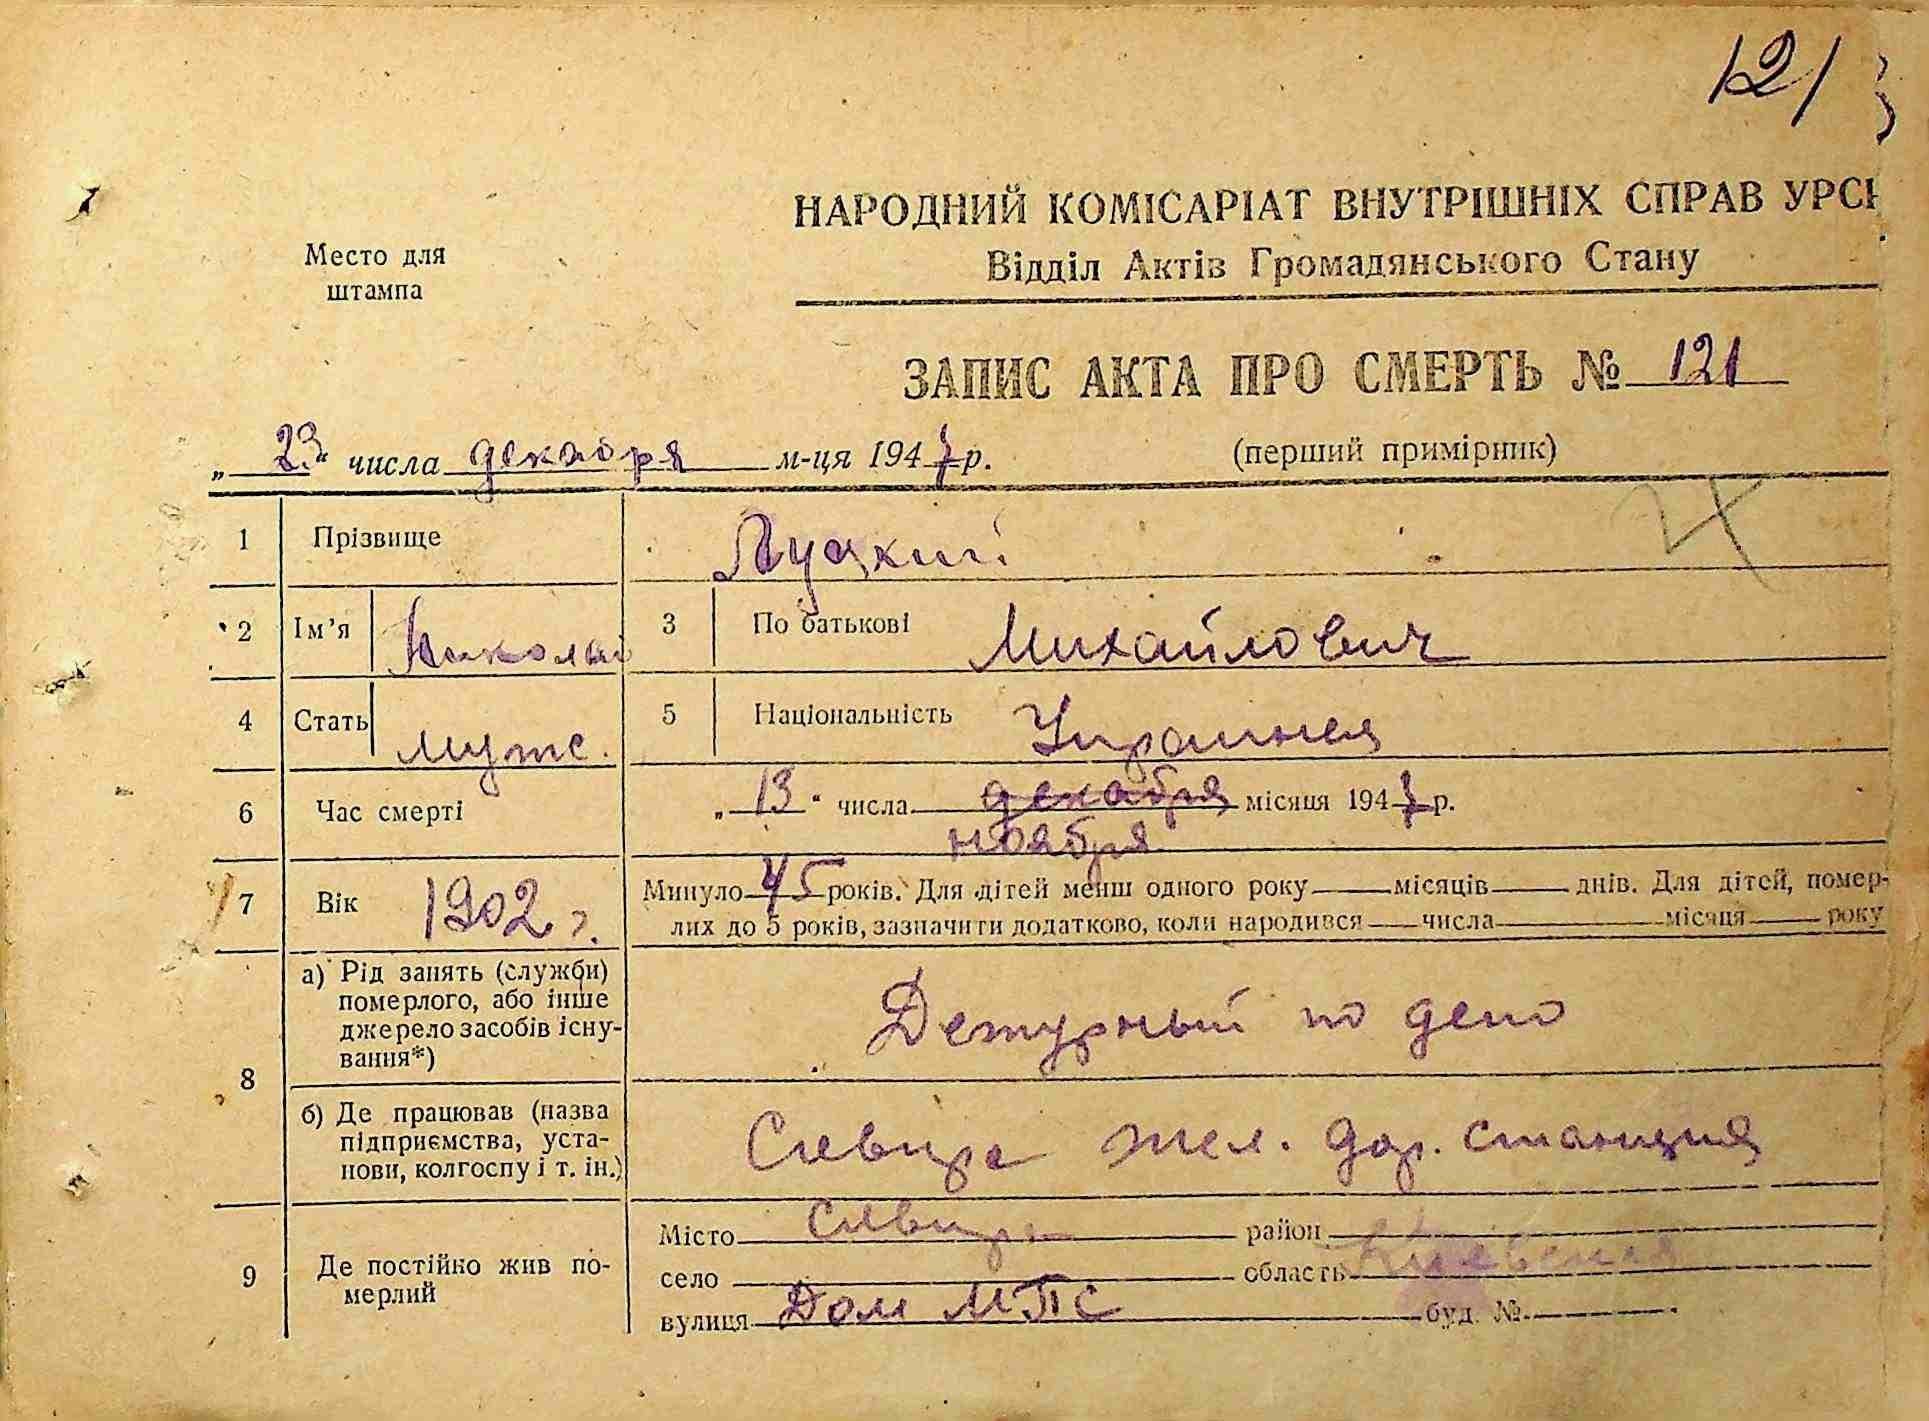 121
НАРОДНИЙ КОМІСАРІАТ ВНУТРІШНІХ СПРАВ УРСР
Відділ Актів Громадянського Стану
Место для
штампа
ЗАПИС АКТА ПРО СМЕРТЬ № 121
„ 23 " числа декабря м-ця 1947 р. (перший примірник)
1 Прізвище Луцкий
2 Ім'я Николай 3 По батькові Михайлович
4 Стать муж. 5 Національність
6 Час смерті „ 13 " числа декабря місяця 1947 р.
ноября
7 Вік 1902 г. Минуло 45 років. Для дітей менш одного року місяців днів. Для дітей, помер-
лих до 5 років, зазначити додатково, коли народився числа місяця року
8 а) Рід занять (служби)
померлого, або інше
джерело засобів існу-
вання*)
Дежурный по депо
б) Де працював (назва
підприємства, уста-
нови, колгоспу і т. ін.)
Сквира жел. дор. станция
9 Де постійно жив по-
мерлий
Місто Сквира район
село область Киевская
вулиця Дом МПС буд. №